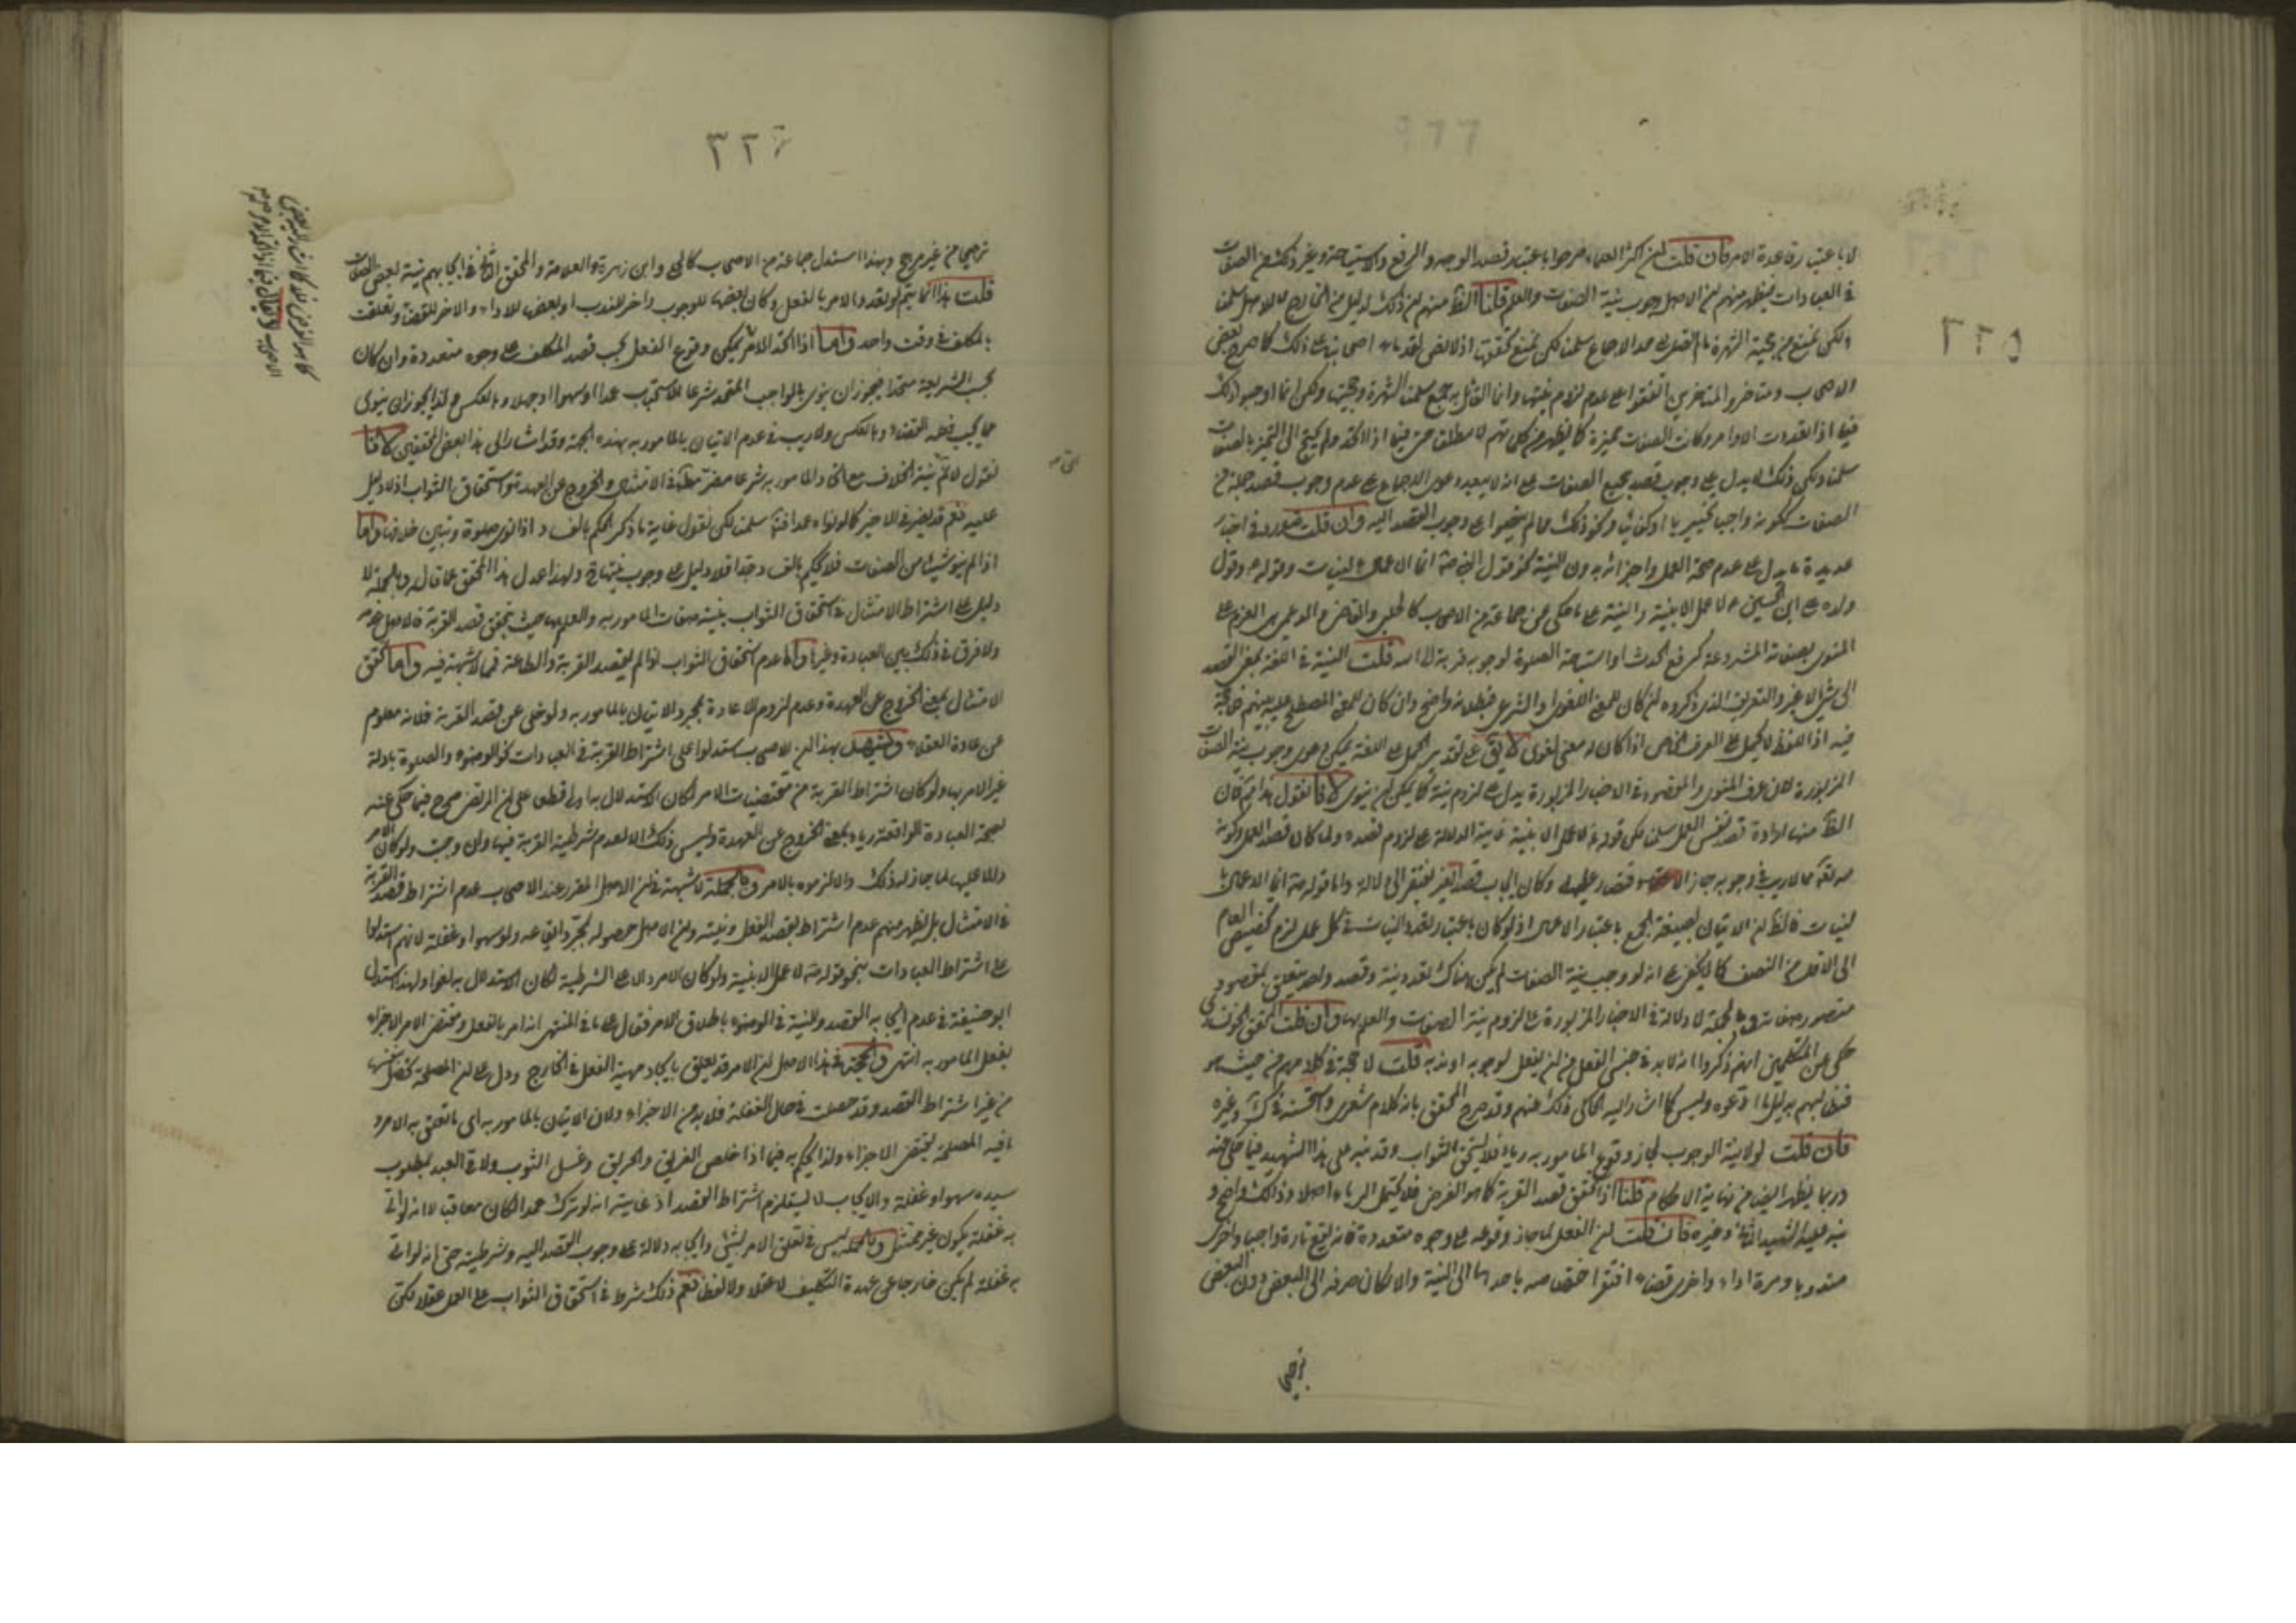 لا باعتبار قاعدة الامر فان قلت ان اكثر العلماء صرحوا باعتبار قصد الوجه والرفع والاستباحة وغير ذلك من الصفات
في العبادات فيظهر منهم ان الاصل وجوب نية الصفات والعلم قلنا الظ منهم ان ذلك لدليل من الخارج لا للاصل سلمنا
لكن نمنع من حجية الشهرة ما لم تصل الى حد الاجماع سلمنا لكن نمنع تحققها اذ لا نص لقدماء اصحابنا على ذلك كما صرح بعض
الاصحاب ومتاخرو المتاخرين اتفقوا على عدم لزوم نيتها وانما القائل به جمع سلمنا الشهرة وحجيتها ولكن انما اوجبوا ذلك
فيما اذا تعددت الاوامر وكانت الصفات مميزة كما يظهر من كلماتهم لا مطلقا حتى فيما اذا اتحد ولم يحتج الى التميز بالصفات
سلمنا ولكن ذلك لا يدل على وجوب قصد جميع الصفات على انه لا يبعد دعوى الاجماع على عدم وجوب قصد جملة من
الصفات ككونه واجبا تخييريا او كفائيا ونحو ذلك مما لم ينصوا على وجوب القصد اليه وان قلت قد ورد في اخبار
عديدة ما يدل على عدم صحة العمل واجزائه بدون النية نحو قول النبي ص انما الاعمال بالنيات وقوله ص وقول
ولده علي ابن الحسين ع لا عمل الا بنية والنية على ما حكي عن جماعة من الاصحاب كالحلبي والقاضي والديلمي العزم على
المنوي بصفاته المشروعة كرفع الحدث او استباحة الصلوة لوجوبه قربة الى الله قلت النية في اللغة بمعنى القصد
الى شيء لا غير والتعريف الذي ذكروه ان كان للمعنى اللغوي او الشرعي فبطلانه واضح وان كان للمعنى المصطلح عليه بينهم فلا حجة
فيه اذ اللفظ لا يحمل على العرف الخاص اذا كان له معنى لغوي لا يق على تقدير الحمل على اللغة يمكن دعوى وجوب نية الصفات
المزبورة لان عرف المنوي والمقصود في الاخبار المزبورة يدل على لزوم نية كلما يمكن ان ينوى لانا نقول هذا ثم فان
الظ منها ارادة قصد نفس العمل سلمنا لكن قوله لا عمل الا بنية غاية الدلالة على لزوم قصده ولما كان قصد العمل وكونه
متعلقه مما لا ريب في وجوبه جاز الاقتصار عليه وكان ايجاب قصد الغير مفتقر الى دلالة واما قوله ص انما الاعمال با
لنيات فالظ ان الاتيان بصيغة الجمع باعتبار الاعمال اذ لو كان باعتبار تعدد النيات في كل عمل لزم تخصيص العام
الى الاقل من النصف كما لا يخفى على انه لو وجب نية الصفات لم يكن هناك تعدد نية وقصد واحد يتعلق بمقصود
متصور بصفاته وبالجملة لا دلالة في الاخبار المزبورة على لزوم نية الصفات والعلم بها وان قلت المحقق الخونساري
حكى عن المتكلمين انهم ذكروا انه لا بد في جنس الفعل من ان يفعل لوجوبه او ندبه قلت لا حجة في كلامهم من حيث هو
فنطالبهم بدليل ما ادعوه وليس كما اشار اليه الحاكي ذلك عنهم وقد صرح المحقق بانه كلام شعري واستحسنه في ك وغيره
فان قلت لولا نية الوجوب لجاز وقوع المامور به رياء فلا يستحق الثواب وقد نبه على هذا الشهيد فيما حكي عنه
وربما يظهر ايضا من نهاية الاحكام قلنا اذا تحقق قصد القربة كما هو الفرض فلا يحتمل الرياء اصلا وذلك واضح و
نبه عليه الشهيد الثاني وغيره فان قلت ان الفعل لما جاز وقوعه على وجوه متعددة فانه يقع تارة واجبا واخرى
مندوبا ومرة اداء واخرى قضاء افتقر اختصاصه باحدها الى النية والا لكان صرفه الى البعض دون البعض
ترجيحا
٢٢٥
٢٢٦
ترجيحا من غير مرجح وبهذا استدل جماعة من الاصحاب كالحلي وابن زهرة والعلامة والمحقق الثاني في ايجابهم نية بعض الصفات
قلت هذا انما يتم لو تعدد الامر بالفعل وكان بعضها للوجوب واخر للندب او بعضها للاداء والاخر للقضاء وتعلقت
بالمكلف في وقت واحد واما اذا اتحد الامر فيمكن وقوع الفعل بحسب قصد المكلف على وجوه متعددة وان كان
بحسب الشريعة متحدا فيجوز ان ينوي بالواجب المتحد شرعا الاستحباب عمدا او سهوا او جهلا وبالعكس وكذا يجوز ان ينوي
بما يجب فعله القضاء وبالعكس ولا ريب في عدم الاتيان بالمامور به بهذه الجهة وقد اشار الى هذا بعض المحققين لانا
نقول لا نم نية الخلاف مع اتحاد المامور به شرعا مضرة مطلقا في الامتثال والخروج عن العهدة واستحقاق الثواب اذ لا دليل
عليه نعم قد يضر في الاخير كما لو نواه عمدا فتا سلمنا لكن نقول غاية ما ذكر الحكم بالفساد اذا نوى صلوة وتبين خلافها واما
اذا لم ينو شيئا من الصفات فلا يحكم بالفساد جدا فلا دليل على وجوب نيتها ح ولهذا عدل هذا المحقق عما قال وبالجملة لا
دليل على اشتراط الامتثال في استحقاق الثواب بنية صفات المامور به والعلم بها حيث يتحقق قصد القربة فلا اصل عدمه
ولا فرق في ذلك بين العبادة وغيرها واما عدم استحقاق الثواب لو لم يقصد القربة والطاعة فمما لا شبهة فيه واما تحقق
الامتثال بمعنى الخروج عن العهدة وعدم لزوم الاعادة بمجرد الاتيان بالمامور به ولو خلى عن قصد القربة فلانه معلوم
من عادة العقلاء ويشهد بهذا ان الاصحاب استدلوا على اشتراط القربة في العبادات نحو الوضوء والصلوة بادلة
غير الامر بها ولو كان اشتراط القربة من مقتضيات الامر لكان الاستدلال به اولى قطعا على ان المرتضى صرح فيما حكي عنه
بصحة العبادة الواقعة رياء بمعنى الخروج عن العهدة وليس ذلك الا لعدم شرطية القربة فيها وان وجبت ولو كان الامر
دالا عليها لما جاز له ذلك والا لزموه بالامر وبالجملة لا شبهة في ان الاصل المقرر عند الاصحاب عدم اشتراط قصد القربة
في الامتثال بل يظهر منهم عدم اشتراط بقصد الفعل ونيته وان الاصل حصوله بمجرد ايقاعه ولو سهوا وغفلة لانهم استدلوا
على اشتراط العبادات بنحو قوله ص لا عمل الا بنية ولو كان الامر دالا على الشرطية لكان الاستدلال به لغوا ولهذا استدل
ابو حنيفة في عدم ايجابه القصد والنية في الوضوء باطلاق الامر فقال على ما في المنتهى انه امر بالفعل ومقتضى الامر الاجزاء
بفعل المامور به انتهى والحجة في هذا الاصل ان الامر قد يعلق بايجاد مهية الفعل في الخارج ودل على ان المصلحة تحصل بنفسها
من غير اشتراط القصد وقد حصلت في حال الغفلة فلا بد من الاجزاء ولان الاتيان بالمامور به اي ما تعلق به الامر و
ما فيه المصلحة يقتضي الاجزاء ولذا يحكم به فيما اذا خلص الغريق والحريق وغسل الثوب ولاقى العبد مطلوب
سيده سهوا وغفلة والايجاب لا يستلزم اشتراط القصد اذ غايته انه لو ترك عمدا لكان معاقبا لا انه لو اتى
به غفلة يكون غير ممتثل وبالجملة ليس في تعلق الامر بشيء وايجابه دلالة على وجوب القصد اليه وشرطيته حتى انه لو اتى
به غفلة لم يكن خارجا عن عهدة التكليف لا عقلا ولا لفظا نعم ذلك شرط في استحقاق الثواب على العمل عقلا لكن